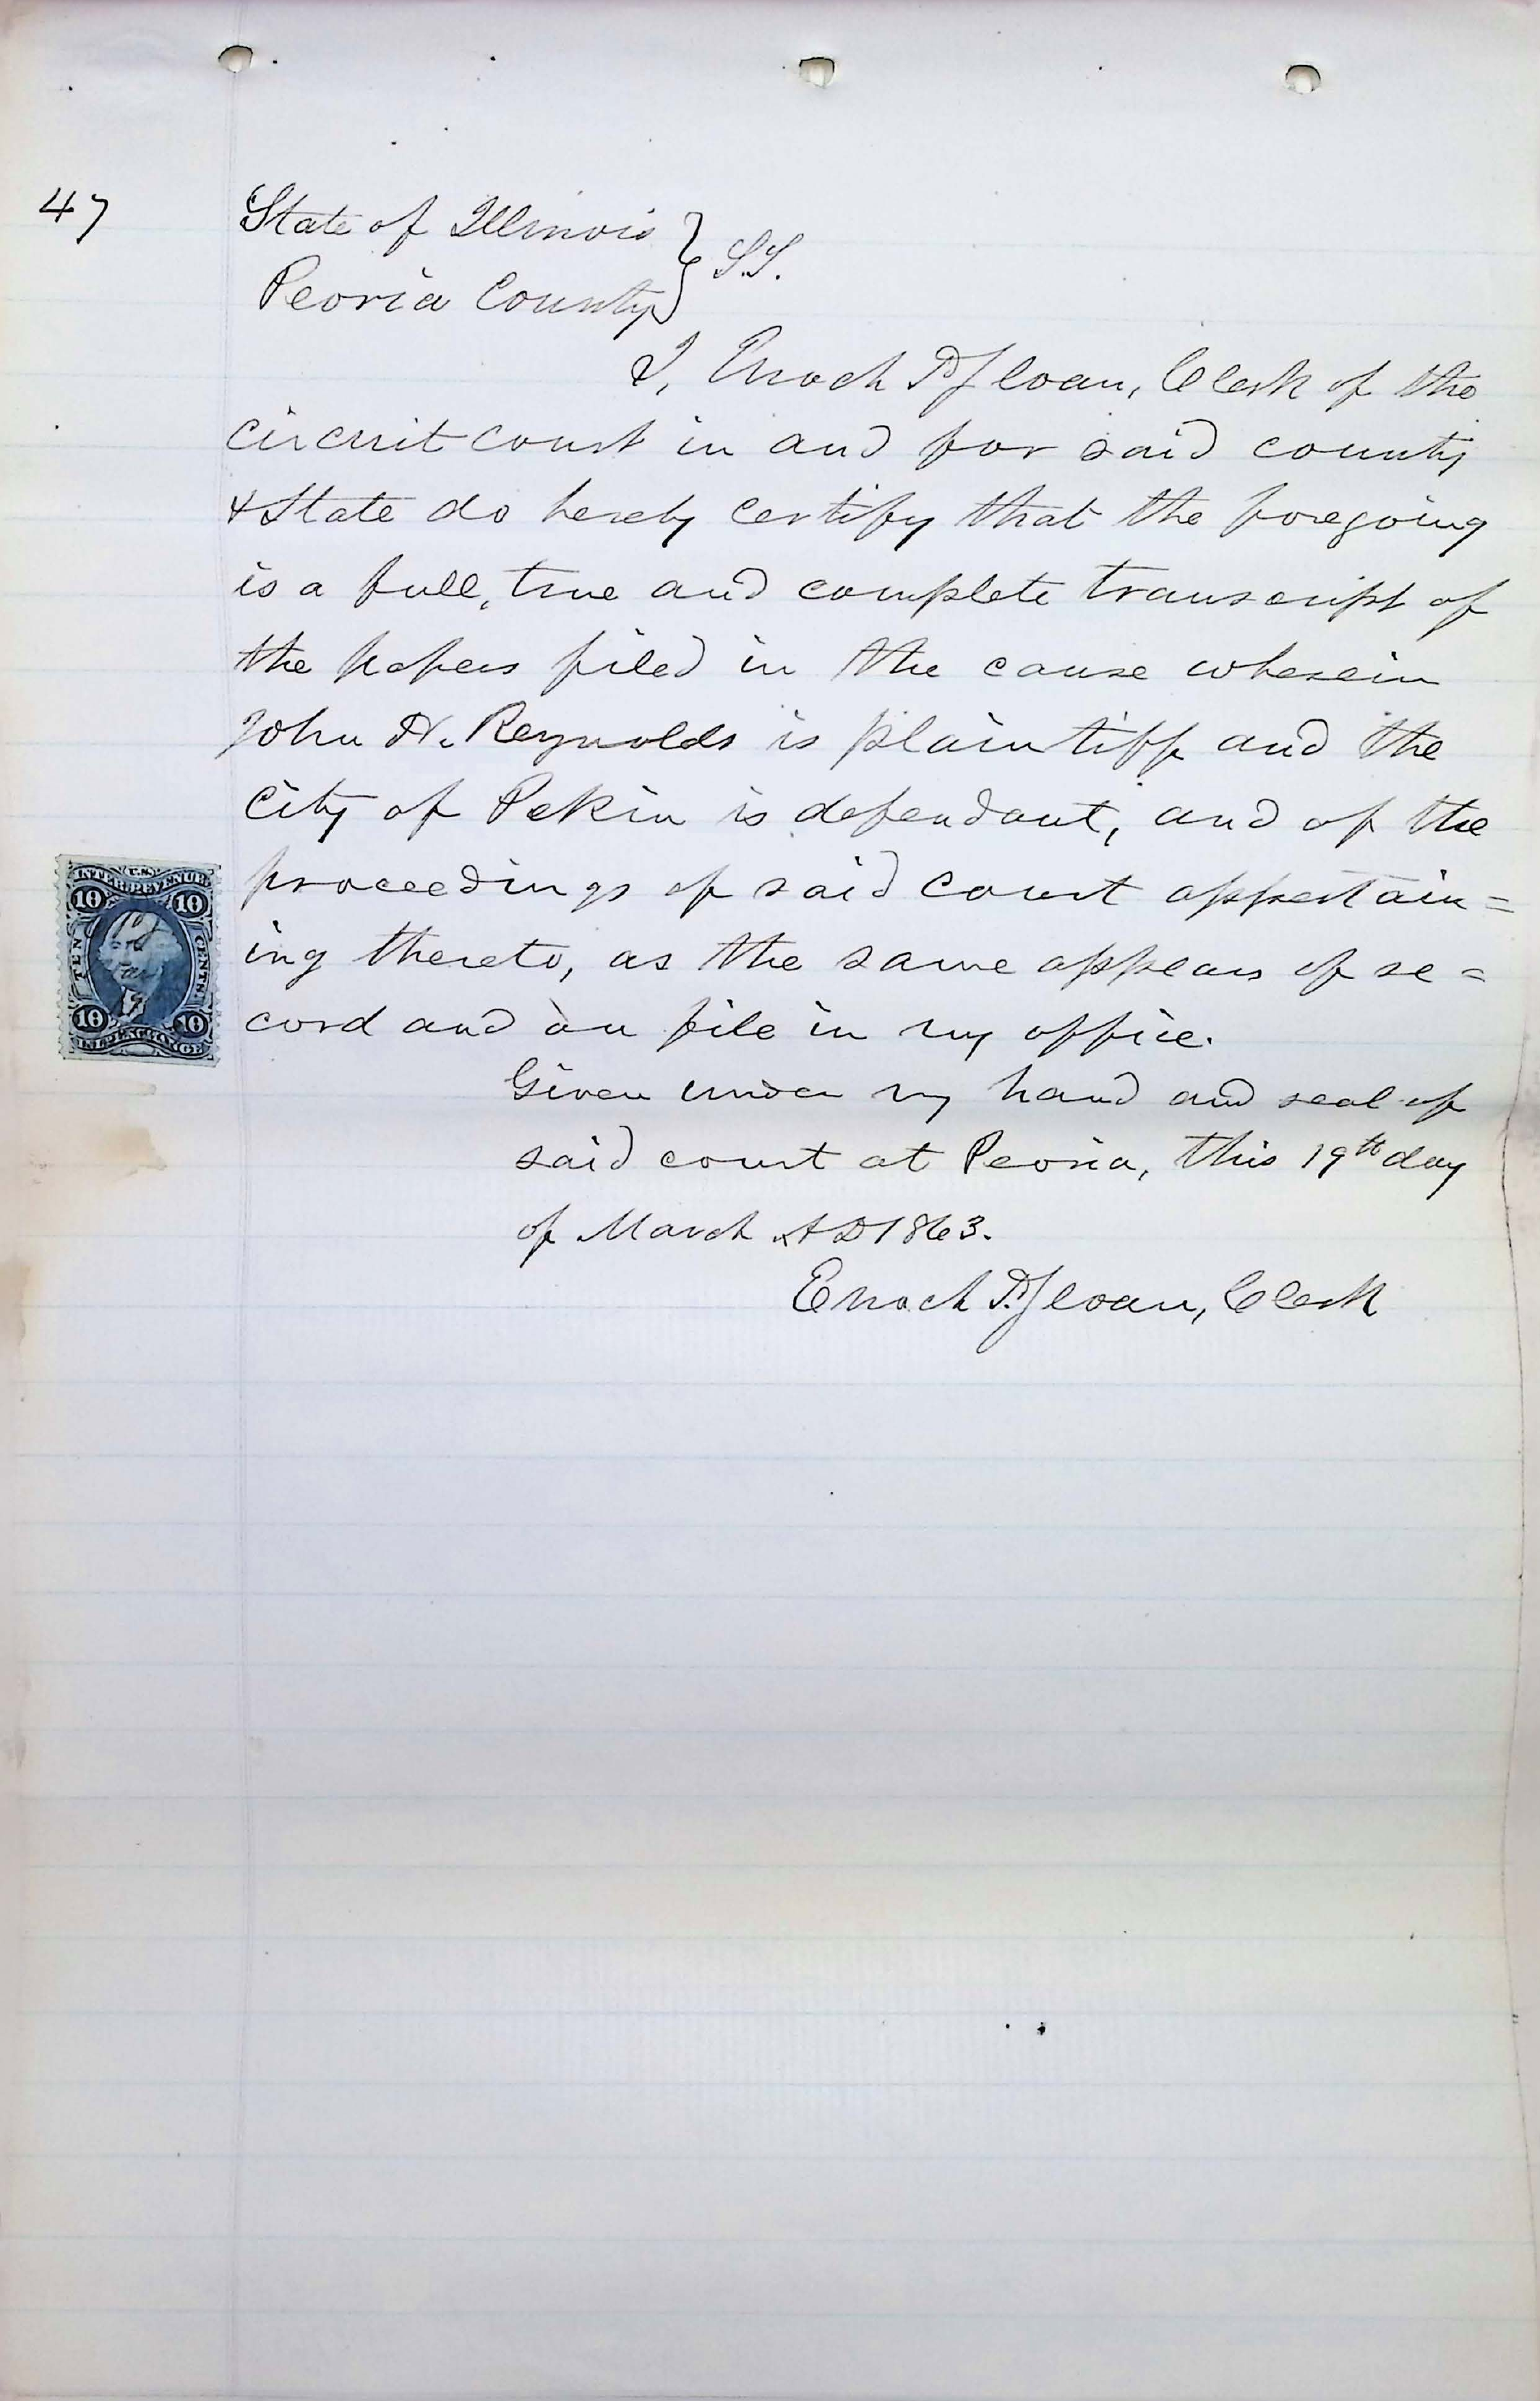 47
State of Illinois } S.S.
Peoria County }
I, Enoch P. Sloan, Clerk of the
circuit court in and for said county
& State do hereby certify that the foregoing
is a full, true and complete transcript of
the papers filed in the cause wherein
John H. Reynolds is plaintiff and the
City of Pekin is defendant, and of the
proceedings of said court appertain=
ing thereto, as the same appears of re=
cord and on file in my office.
Given under my hand and seal of
said court at Peoria, this 19th day
of March A D 1863.
Enoch P. Sloan, Clerk
U.S.
INTER. REVENUE
10 10
TEN CENTS
10 10